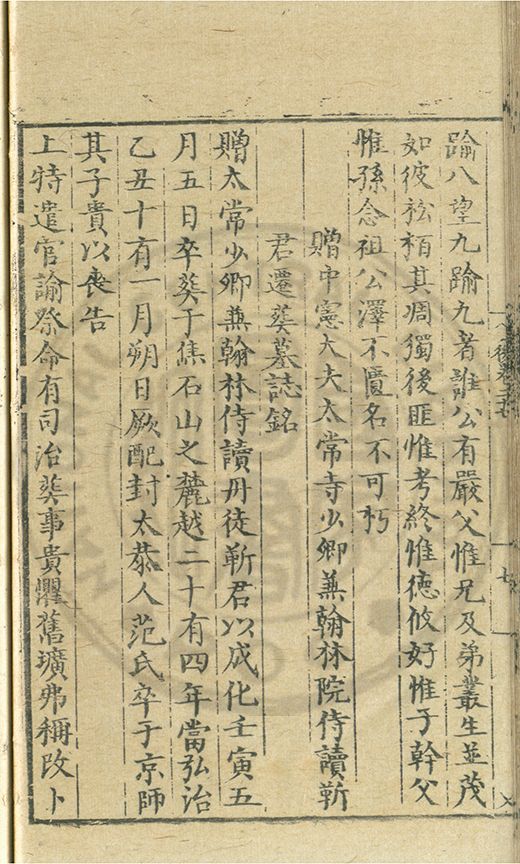 踰八望九踰九者誰公有嚴父惟兄及弟叢生並茂
如彼松栢其凋獨後匪惟考終惟德攸好惟子幹父
惟孫念祖公澤不匱名不可朽
贈中憲大夫太常寺少卿兼翰林院侍讀靳
君遷葬墓誌銘
贈太常少卿兼翰林侍讀丹徒靳君以成化壬寅五
月五日卒葬于焦石山之麓越二十有四年當弘治
乙丑十有一月朔日厥配封太恭人范氏卒于京師
其子貴以喪告
上特遣官諭祭命有司治葬事貴懼舊壙弗稱改卜
七